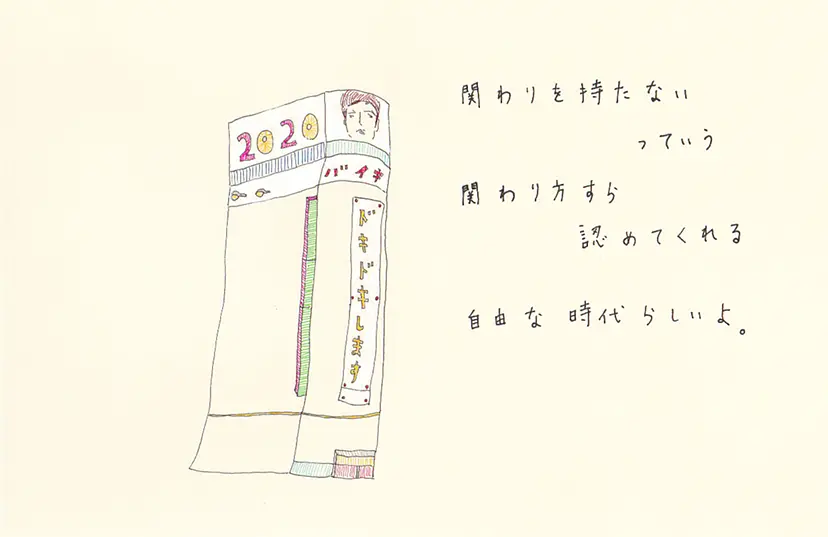 2020
バイキ
ドキドキします
関わりを持たない
っていう
関わり方すら
認めてくれる
自由な時代らしいよ。